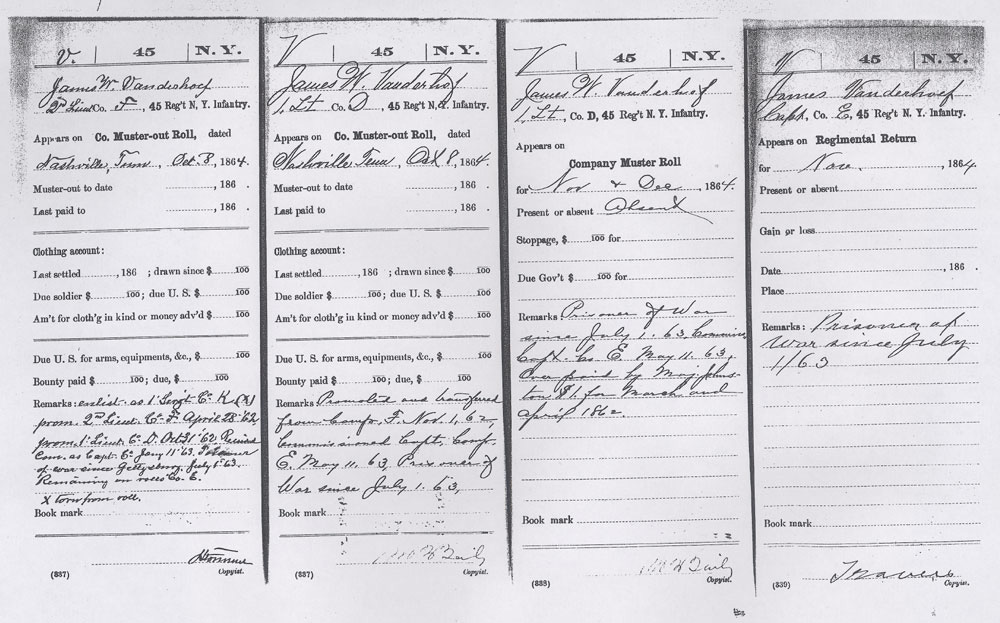 V. | 45 | N.Y.
James W. Vanderhoef
2d Lieut Co. F, 45 Reg't N. Y. Infantry.
Appears on Co. Muster-out Roll, dated
Nashville, Tenn, Oct. 8, 1864.
Muster-out to date , 186 .
Last paid to , 186 .
Clothing account:
Last settled , 186 ; drawn since $ 100
Due soldier $ 100; due U. S. $ 100
Am't for cloth'g in kind or money adv'd $ 100
Due U. S. for arms, equipments, &c., $ 100
Bounty paid $ 100; due, $ 100
Remarks: enlist. as 1' Sergt Co. K (X)
prom. 2d Lieut. Co. F. April 28 '62,
prom. 1' Lieut. Co. D. Oct 31 '62. Received
Com. as Capt. Co. Jany 11 '63. Prisoner
of war since Gettysburg, July 1st 63.
Remaining on rolls Co. E.
X torn from roll.
Book mark
(837) Copyist.
V | 45 | N.Y.
James W. Vanderhof
1. Lt Co. D, 45 Reg't N. Y. Infantry.
Appears on Co. Muster-out Roll, dated
Nashville Tenn, Oct 8, 1864.
Muster-out to date , 186 .
Last paid to , 186 .
Clothing account:
Last settled , 186 ; drawn since $ 100
Due soldier $ 100; due U. S. $ 100
Am't for cloth'g in kind or money adv'd $ 100
Due U. S. for arms, equipments, &c., $ 100
Bounty paid $ 100; due, $ 100
Remarks Promoted and transferred
from Comp. F. Nov. 1, 62,
Commissioned Capt. Comp.
E. May 11. 63, Prisoner of
War since July 1. 63,
Book mark
(837) Copyist.
V | 45 | N.Y.
James W. Vanderhof
1. Lt., Co. D, 45 Reg't N. Y. Infantry.
Appears on
Company Muster Roll
for Nov & Dec , 1864.
Present or absent Absent
Stoppage, $ 100 for
Due Gov't $ 100 for
Remarks Prisoner of War
since July 1. 63, Commis
Capt. Co E. May 11. 63,
Over paid by Maj.
$1. for March and
April 1862
Book mark
(838) Copyist.
V | 45 | N.Y.
James Vanderhoef
Capt, Co. E, 45 Reg't N. Y. Infantry.
Appears on Regimental Return
for Nov. , 1864
Present or absent
Gain or loss
Date , 186 .
Place
Remarks: Prisoner of
War since July
1/63
Book mark
Travers
(839) Copyist.